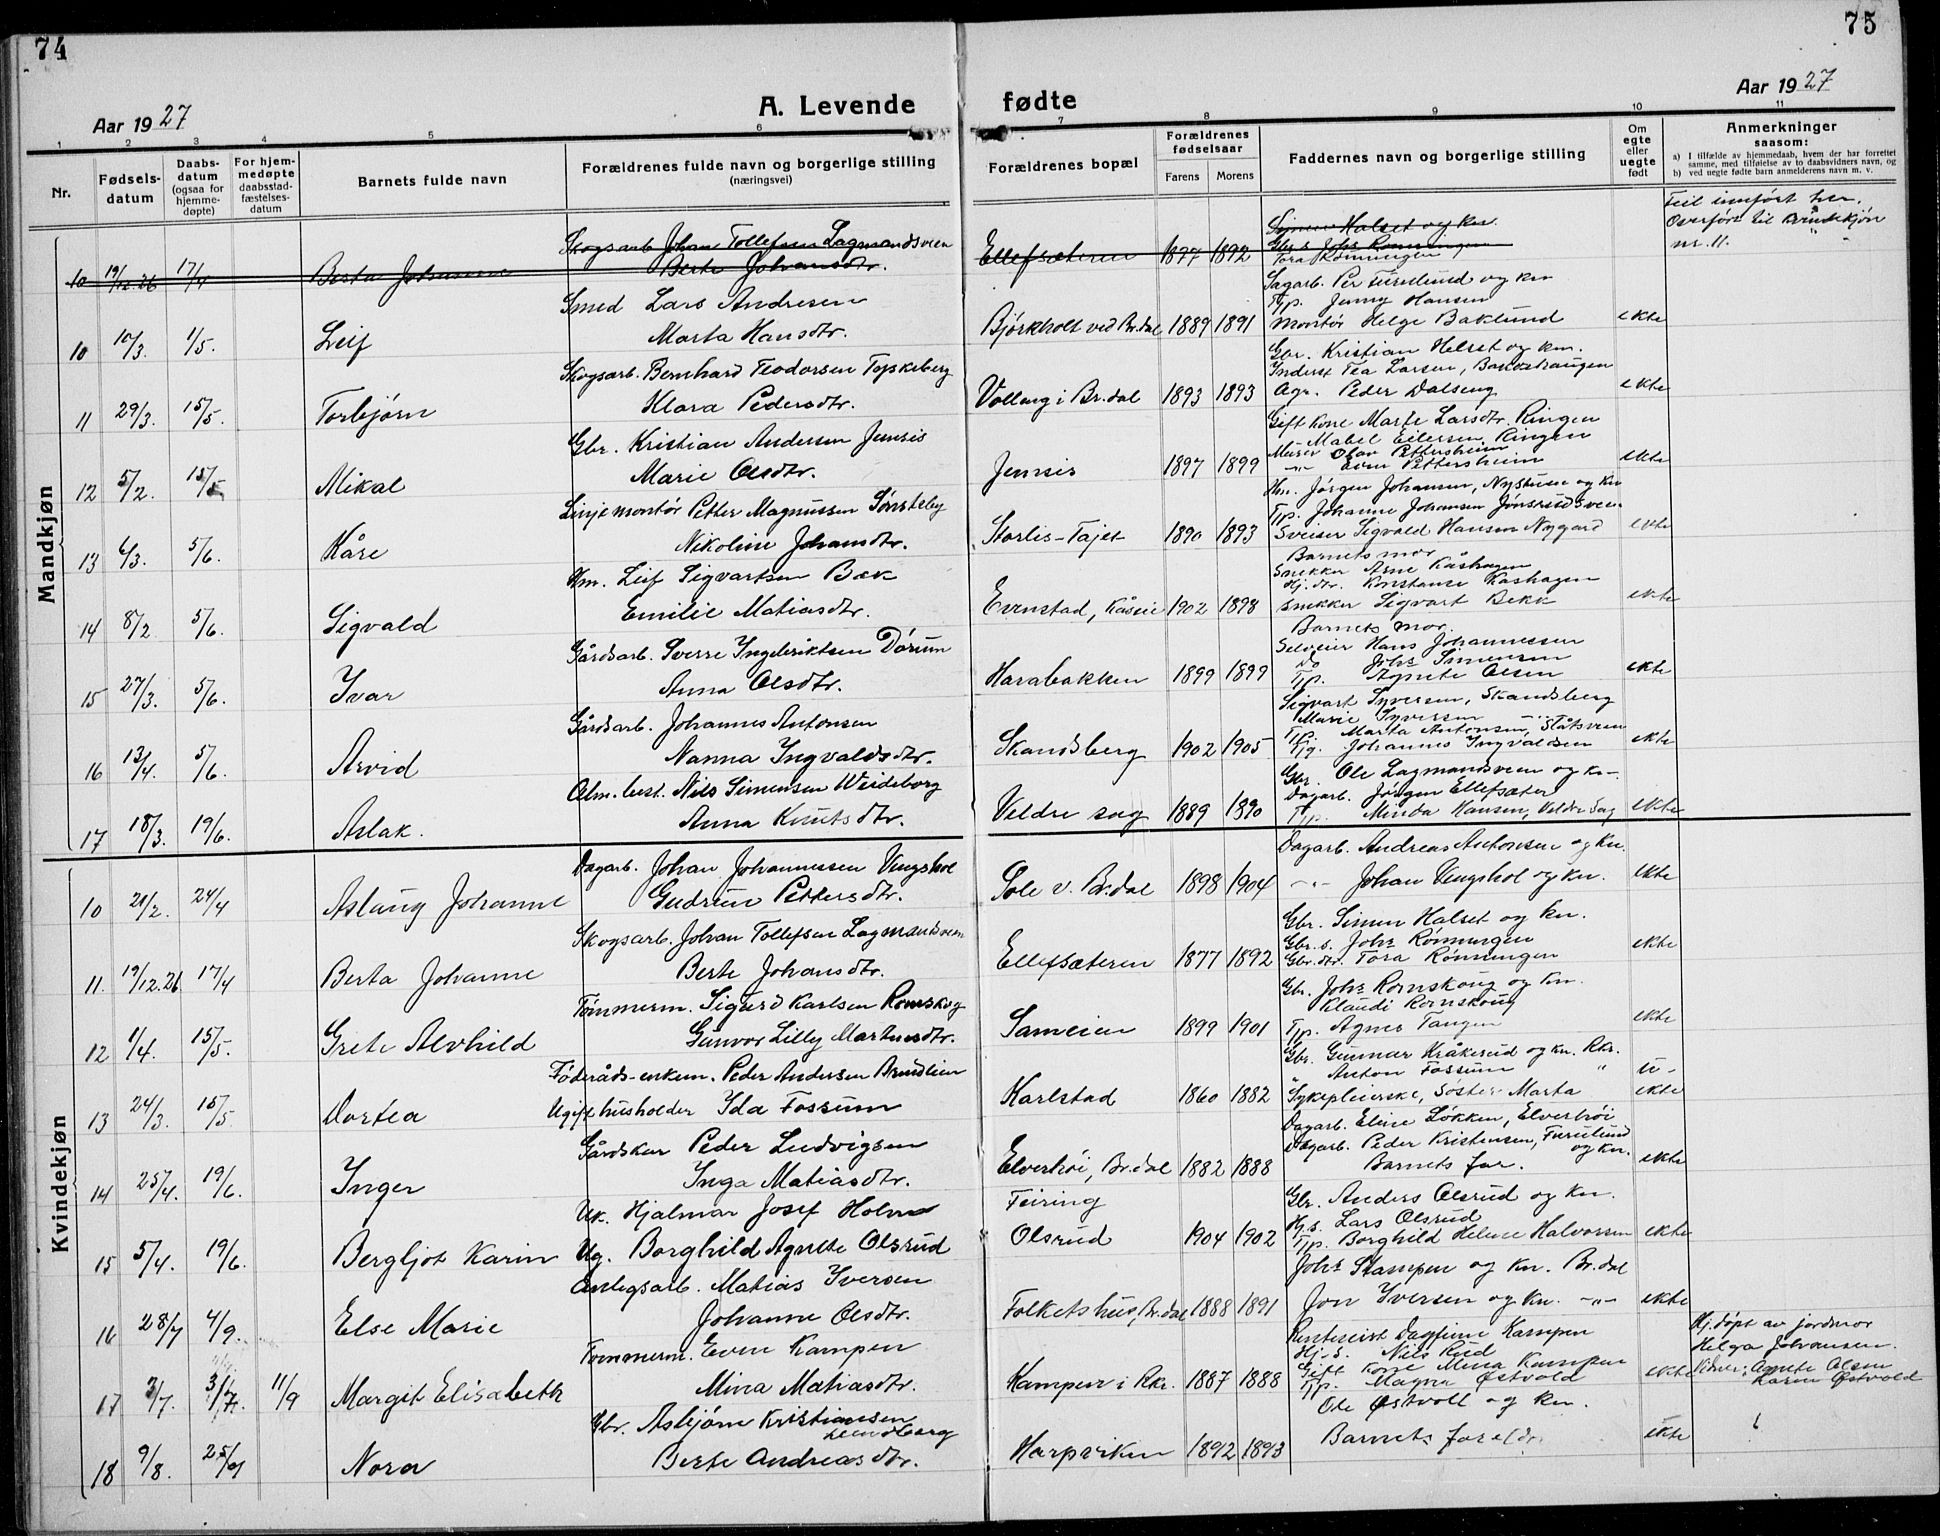 74
75
Aar 1927
A. Levende
fødte
Aar 1927
1 2 3 4 5 6 7 8 9 10 11
Nr.
Fødsels-
datum
Daabs-
datum
(ogsaa for
hjemme-
døpte)
For hjem-
medøpte
daabsstad-
fæstelses-
datum
Barnets fulde navn
Forældrenes fulde navn og borgerlige stilling
(næringsvei)
Forældrenes bopæl
Forældrenes
fødselsaar
Farens Morens
Faddernes navn og borgerlige stilling
Om
egte
eller
uegte
født
Anmerkninger
saasom:
a) I tilfælde av hjemmedaab, hvem der har forrettet
samme, med tilføielse av to daabsvidners navn, og
b) ved uegte fødte barn anmelderens navn m. v.
Mandkjøn
Skogsarb. Johan Tollefsen Lagmandsveen
Halset og kn.
Feil innført her.
Overført til kvindekjøn
nr. 11.
10 19/12.26 17/4 Berta Johanne
Berte Johansdtr.
Ellefsæteren 1877 1892
Tora Rønningen
Smed Lars Andresen
Sagarb. Per Furulund og kn
Tjp. Jenny Hansen
10 10/3. 1/5. Leif
Marta Hansdtr.
Bjørkholt ved Br.dal 1889 1891 Montør Helge Baklund ekte
Skogsarb. Bernhard Teodorsen Topskeberg
Gbr. Kristian Helset og kn.
Inderst Tea Larsen, Bankehaugen
11 29/3. 15/5. Torbjørn
Klara Pedersdtr.
Volleng i Br.dal 1893 1893 Agr. Peder Dalseng ekte
Gbr. Kristian Andersen Jensis
Gift kone Marte Larsdtr. Ringen
Mabel Eilersen, Ringen
Murer Olav Pettersheim
12 5/2. 15/5 Mikal
Marie Olsdtr.
Jensis 1897 1899 -"- Even Pettersheim ekte
Linjemontør Petter Magnussen Sønsteby
Hm. Jørgen Johansen, Nyshuse og kn
Tjp. Johanne Johansen Jønsrudsveen
13 4/3. 5/6. Kåre
Nikoline Johansdtr.
Storlis-Tajet 1890 1893 Sveiser Sigvald Hansen Nygard ekte
Hm. Leif Sigvartsen Bæk
Barnets mor
Snekker Arne Kåshagen
Hj. dtr. Konstanse Kashagen
14 8/2. 5/6. Sigvald
Emilie Matiasdtr.
Evenstad, Kåsie 1902 1898 Snikker Sigvart Bekk ekte
Gårdsarb. Sverre Ingebriktsen Dørum
Barnets mor.
Selveier Hans Johannessen
Do Johs Simensen
15 27/3. 5/6. Ivar
Anna Olsdtr.
Harabakken 1899 1899 Tjp. Agnete Olsen ekte
Gårdsarb. Johannes Antonsen
Sigvart Syversen, Skandsberg
Marie Syversen -"-
Tjp. Marta Antonsen, Slåtsveen
16 13/4. 5/6. Arvid
Nanna Ingvaldsdtr.
Skandsberg 1902 1905 Tjg. Johannes Ingvaldsen ekte
Alm. best. Nils Simensen Weideborg
Gbr. Ole Lagmandsveen og kn.
Dagarb. Jørgen Ellefsæter
17 18/3. 19/6. Aslak.
Anna Knutsdtr.
Veldre sag 1889 1890 Tjp. Minda Hansen, Veldre Sag ekte
Kvindekjøn
Dagarb. Johan Johannessen Vingshol
Dagarb. Andreas Antonsen og kn.
10 20/2. 24/4 Aslaug Johanne
Gudrun Pettersdtr.
Sole v. Br.dal 1898 1904 -"- Johan Vingshol og kn. ekte
Skogsarb. Johan Tollefsen Lagmandsveen
Gbr. Simen Halset og kn.
Gbr. s. Johs Rønningen
11. 19/12.26 17/4 Berta Johanne
Berte Johansdtr.
Ellefsæteren 1877 1892 Gbr. dtr. Tora Rønningen ekte
Tømmerm. Sigurd Karlsen Romskog
Gbr. Johs Romskoug og kn.
Klaudi Romskoug
12 1/4. 15/5. Grete Alvhild
Gunvor Lilly Martinsdtr.
Sameien 1899 1901 Tjp. Agnes Tangen ekte
Føderåds-enkem. Peder Andersen Brudlien
Gbr. Gunnar Kråkerud og kn. Rkr.
Anton Fossum " u-
13 24/3. 15/5 Dortea
Ugift husholder Ida Fossum
Karlstad 1860 1882 Sykepleierske, Søster Marta ekte
Gårdskar Peder Ludvigsen
Dagarb. Eline Løkken, Elverhöi
Dagarb. Peder Kristensen, Furulund
og kn.
14 25/4. 19/6. Inger
Inga Matiasdtr.
Elverhöi, Br.dal 1882 1888 Barnets far. ekte
Uk. Hjalmar Josef Holm
Feiring
Gbr. Anders Olsrud og kn.
Hj. s. Lars Olsrud
15 5/4. 19/6. Bergljot Karin
Ug. Borghild Agnete Olsrud
Olsrud 1904 1902 Tjp. Borghild Helene Halvorsen ekte
Anlegsarb. Matias Iversen
Johs Stampen og kn. Br.dal
16 28/7 4/9. Else Marie
Johanne Olsdtr.
Folketshus, Br.dal 1888 1891 Jon Iversen og kn. -"- ekte
Tømmerm. Even Kampen
Rentenist Dagfinn Kampen
Hj. s. Nils Rud
Gift kone Mina Kampen
Hj. døpt av jordmor
Helga Johansen.
Vidner: Agnete Olsen
Karin Østvold
17 3/7. 3/7. 11/9 Margit Elisabeth
Mina Matiasdtr.
Kampen i Rkr. 1887 1888 Tjp. Magna Østvold ekte
Gbr. Asbjørn Kristiansen
Lundberg
Ole Østvoll og kn.
18 9/8. 25/9 Nora
Berte Andreasdtr.
Harpviken 1892 1893 Barnets foreldre ekte